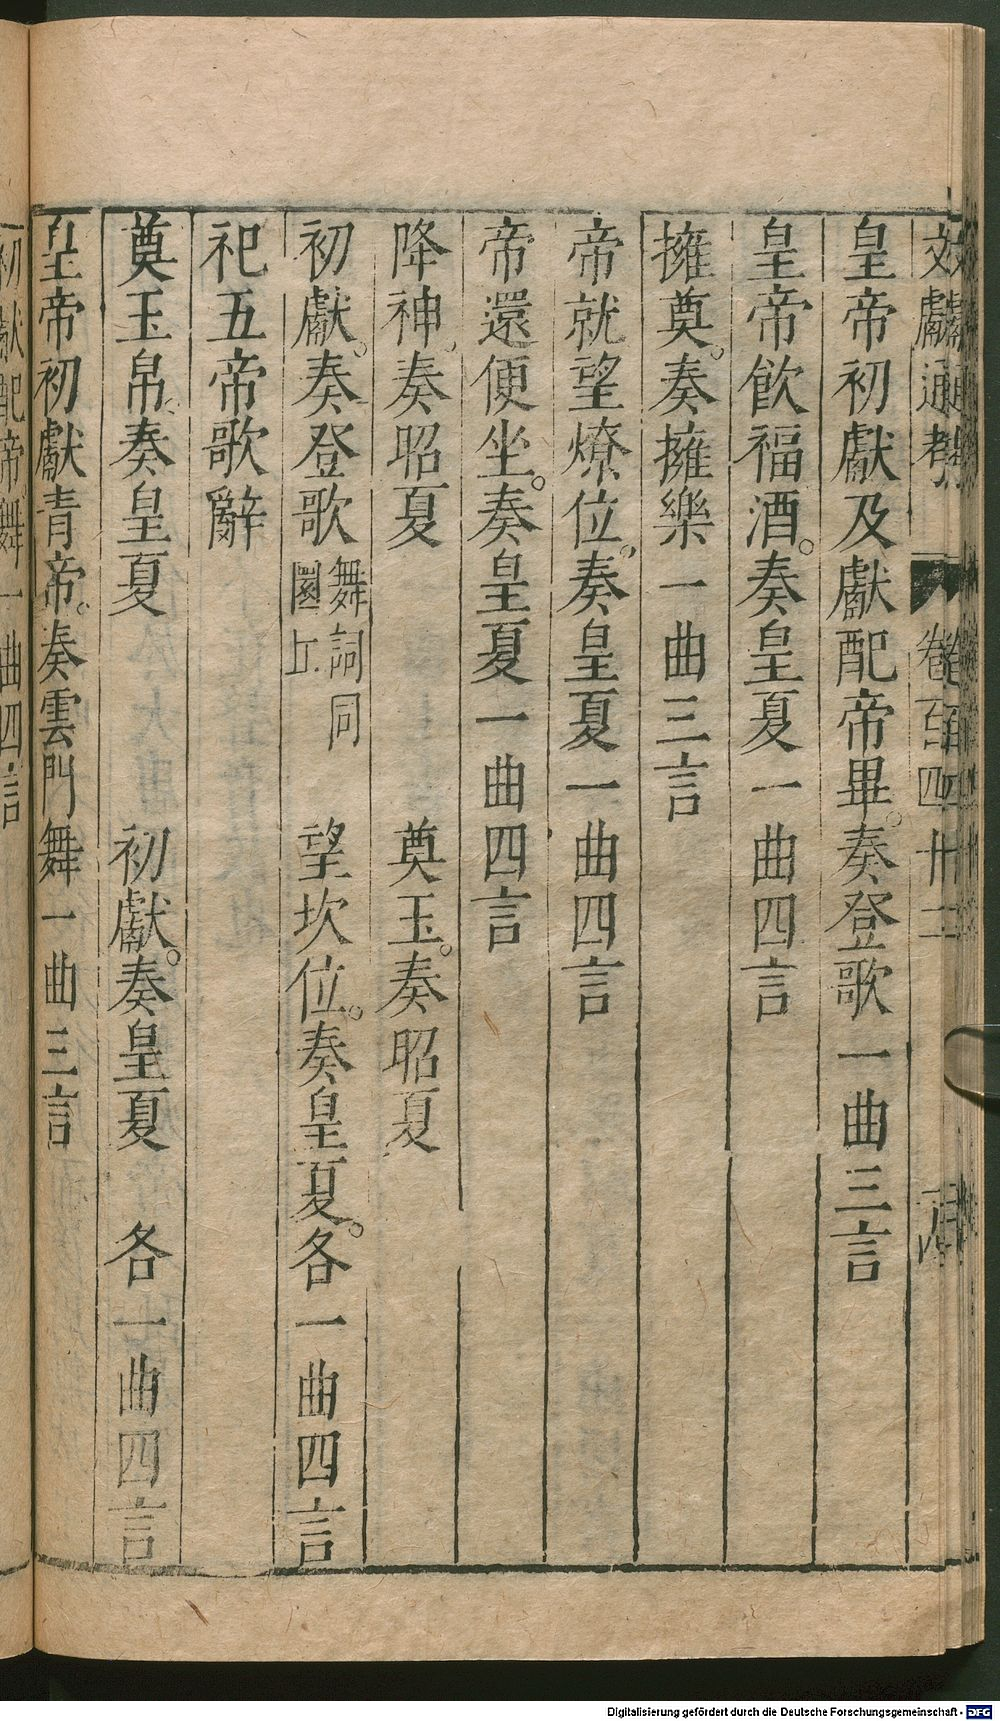 文獻通考 卷百四十二
皇帝初獻及獻配帝畢。奏登歌一曲三言
皇帝飲福酒。奏皇夏一曲四言
擁奠。奏擁樂一曲三言
帝就望燎位。奏皇夏一曲四言
帝還便坐。奏皇夏一曲四言
降神。奏昭夏 奠玉。奏昭夏
初獻。奏登歌 舞詞同圜丘 望坎位。奏皇夏。各一曲四言
祀五帝歌辭
奠玉帛。奏皇夏 初獻。奏皇夏 各一曲四言
皇帝初獻青帝。奏雲門舞一曲三言
初獻配帝舞一曲四言
Digitalisierung gefördert durch die Deutsche Forschungsgemeinschaft - DFG